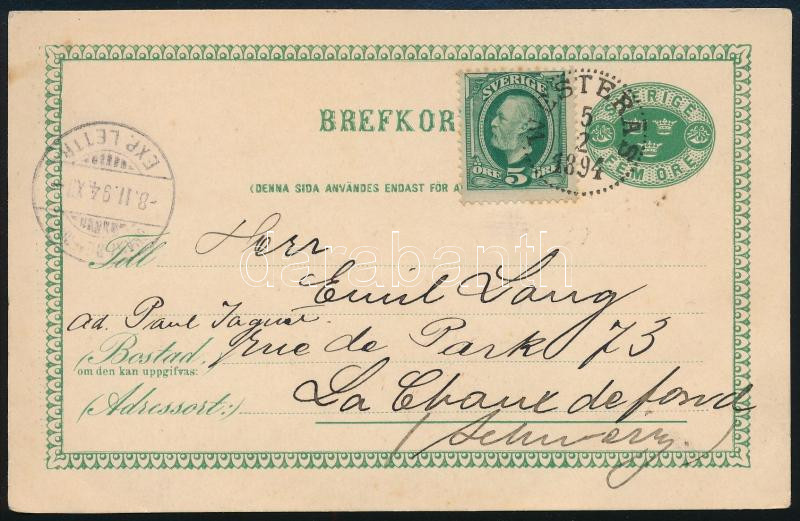 SVERIGE
5 ÖRE
VESTERÅS
5
2
1894
SVERIGE
FEM ÖRE
BREFKOR
(DENNA SIDA ANVÄNDES ENDAST FÖR A
EXP. LETTR.
-8.II.94.XI
Till
Herr
Emil Lang
ad. Paul Jaquet
Bostad
om den kan uppgifvas:
rue de Park 73
(Adressort:)
La Chaux de fond
(Schweiz.)
darabanth